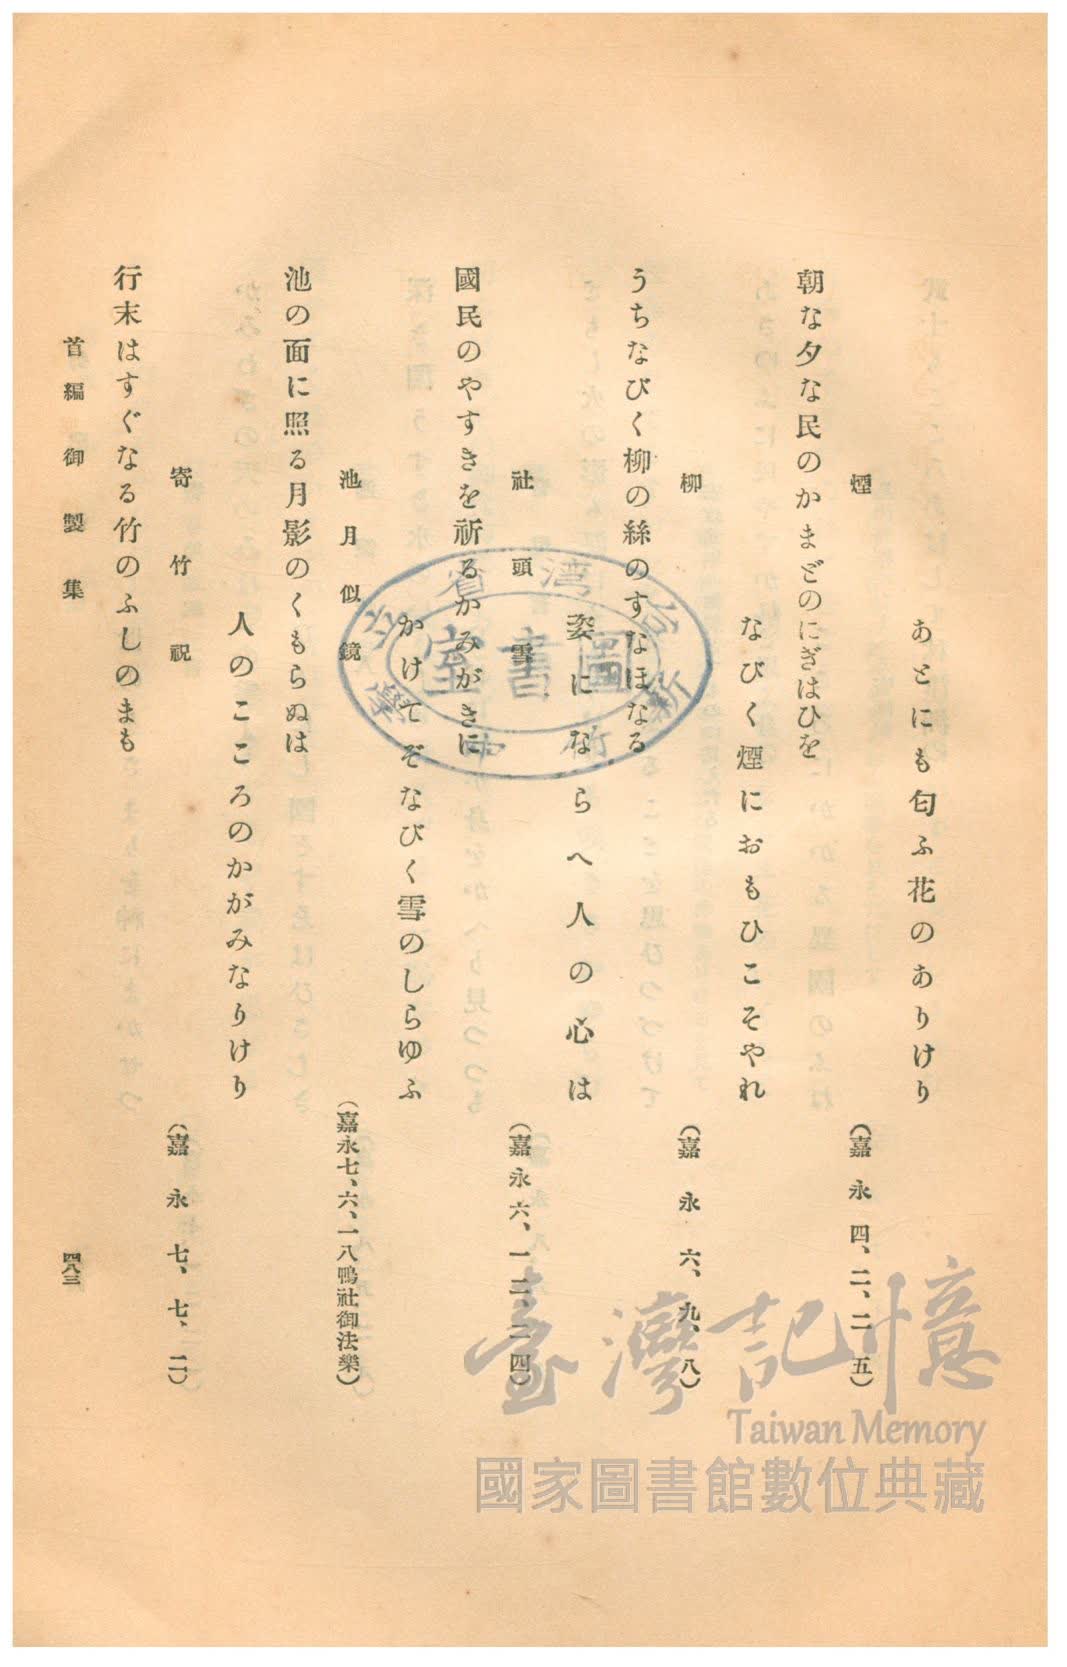 あとにも匂ふ花のありけり
煙
（嘉永四、二、二五）
朝な夕な民のかまどのにぎはひを
なびく煙におもひこそやれ
柳
（嘉永六、九、八）
うちなびく柳の絲のすなほなる
姿にならへ人の心は
社頭雪
（嘉永六、一二、二四）
國民のやすきを祈るかみがきに
かけてぞなびく雪のしらゆふ
池月似鏡
（嘉永七、六、一八鴨社御法樂）
池の面に照る月影のくもらぬは
人のこころのかがみなりけり
寄竹祝
（嘉永七、七、二）
行末はすぐなる竹のふしのまも
首編御製集
四八三
圖書室
臺灣記憶
Taiwan Memory
國家圖書館數位典藏